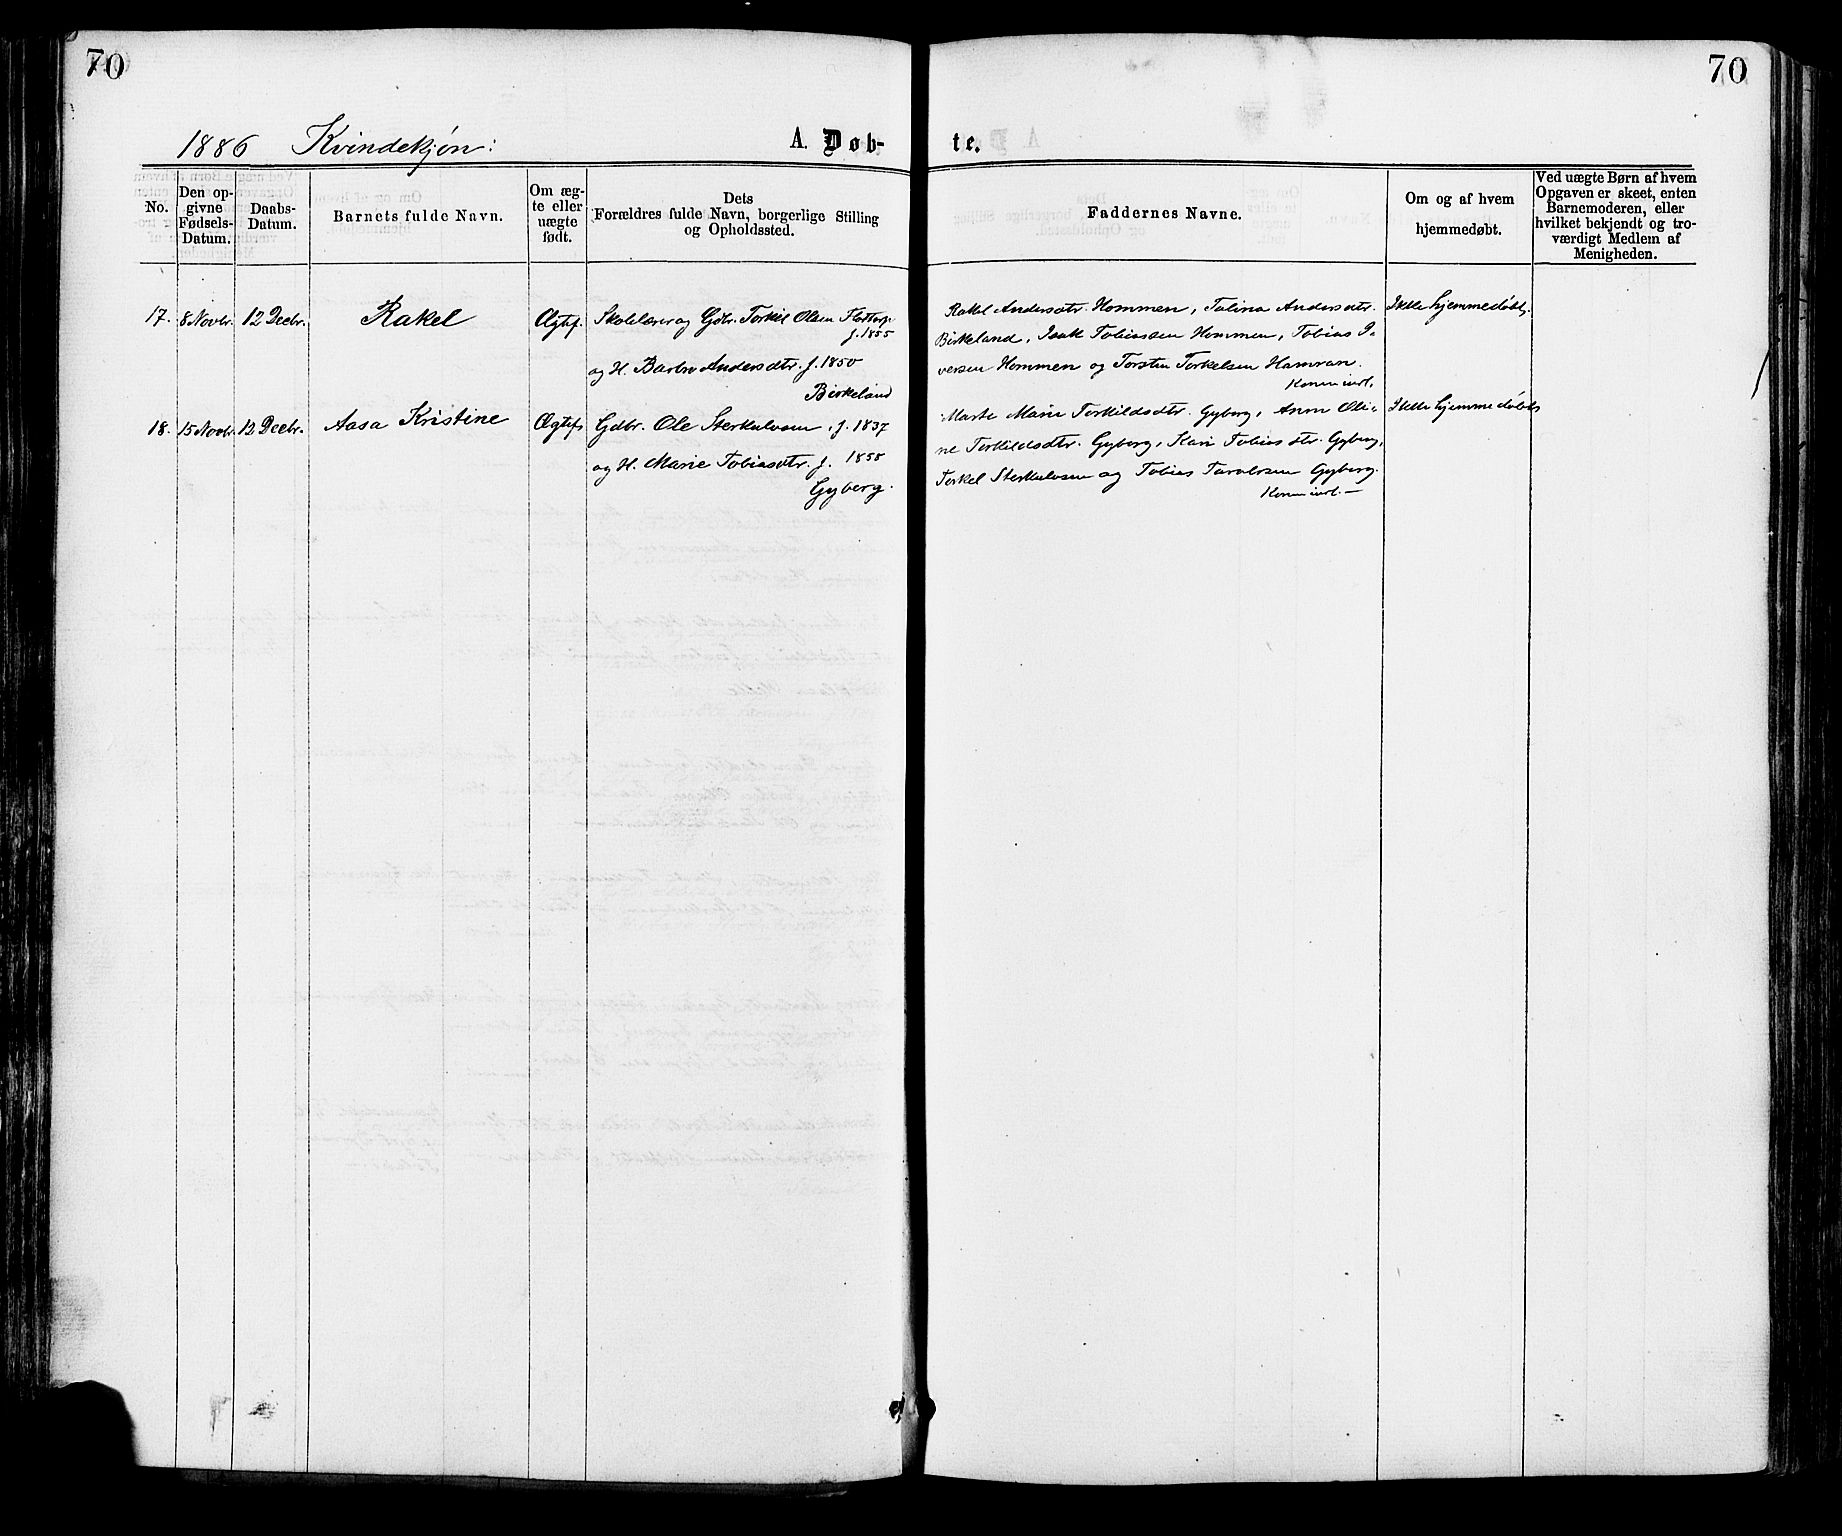 70
70
1886 Kvindekjøn:
A. Døb-
te.
No.
Den op-
givne
Fødsels-
Datum.
Daabs-
Datum.
Barnets fulde Navn.
Om æg-
te eller
uægte
født.
Dets
Forældres fulde Navn, borgerlige Stilling
og Opholdssted.
Faddernes Navne.
Om og af hvem
hjemmedøbt.
Ved uægte Børn af hvem
Opgaven er skeet, enten
Barnemoderen, eller
hvilket bekjendt og tro-
værdigt Medlem af
Menigheden.
17. 8 Novbr. 12 Decbr. Rakel Ægtef. Skolelærer og Gdbr. Torkil Olsen
f. 1855
og H. Barbro Andersdtr. f. 1850
Birkeland
Rakel Andersdtr. Hommen, Talina Andersdtr.
Birkeland, Isak Tobiassen Hommen, Tobias I-
versen Hommen og Torsten Torkelsen Hamran.
Ikke hjemmedøbt.
18. 15 Novbr. 12 Decbr. Aasa Kristine Ægtef. Gdbr. Ole Sterkulvsen, f. 1837
og H. Marie Tobiasdtr. f. 1858
Gyberg.
Marte Marie Torkildsdtr. Gyberg, Anna Oli-
ne Torkildsdtr. Gyberg, Kari Tobiasdtr. Gyberg,
Torkel Sterkulvsen og Tobias Taraldsen Gyberg.
Ikke hjemmedøbt